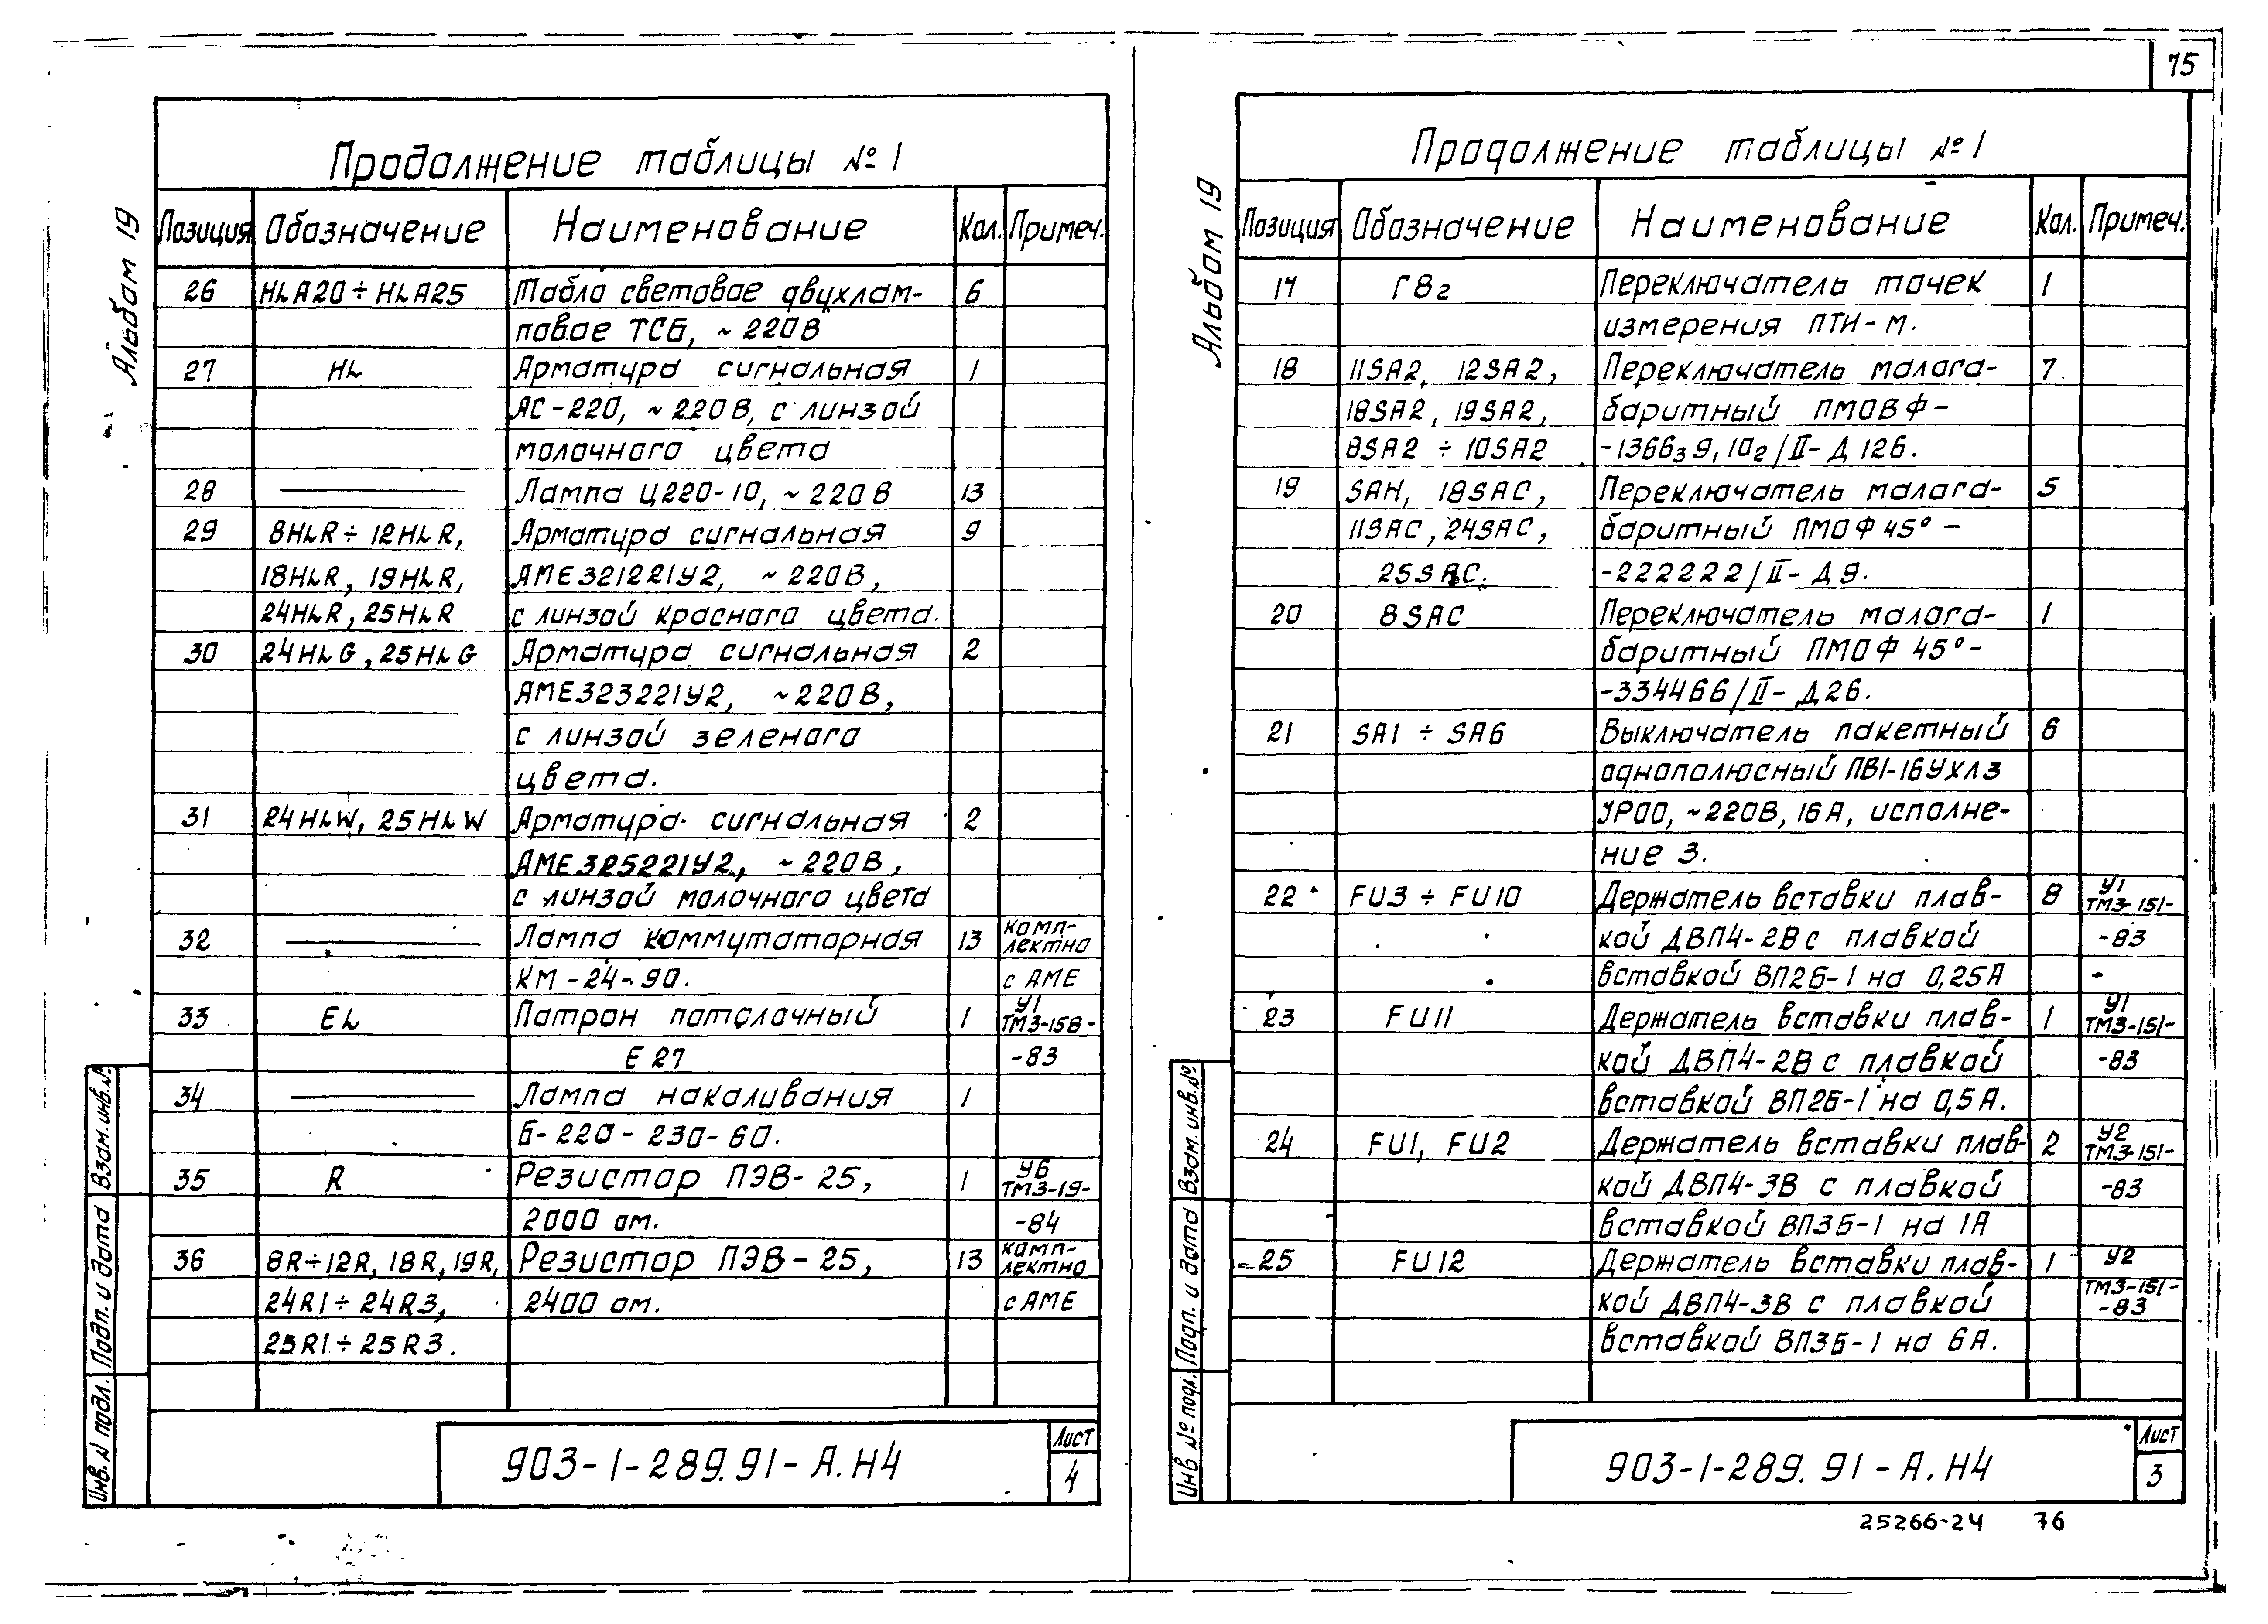 75
Альбом 19
Продолжение таблицы № 1
Позиция Обозначение Наименование Кол. Примеч.
26 HLA20 ÷ HLA25 Табло световое двухлам- 6
повое ТСБ, ~ 220В
27 HL Арматура сигнальная 1
АС-220, ~ 220В, с линзой
молочного цвета
28 Лампа Ц220-10, ~ 220В 13
29 8HLR ÷ 12HLR, Арматура сигнальная 9
18HLR, 19HLR, АМЕ321221У2, ~ 220В,
24HLR, 25HLR с линзой красного цвета.
30 24HLG, 25HLG Арматура сигнальная 2
АМЕ323221У2, ~ 220В,
с линзой зеленого
цвета.
31 24HLW, 25HLW Арматура сигнальная 2
АМЕ325221У2, ~ 220В,
с линзой молочного цвета
32 Лампа коммутаторная 13 комп-
лектно
КМ-24-90. с АМЕ
33 EL Патрон потолочный 1 У1
ТМ3-158-
Е27 -83
34 Лампа накаливания 1
Б-220-230-60.
35 R Резистор ПЭВ-25, 1 У6
ТМ3-19-
2000 ом. -84
36 8R÷12R, 18R, 19R, Резистор ПЭВ-25, 13 комп-
лектно
24R1÷24R3, 2400 ом. с АМЕ
25R1÷25R3.
Инв. N подл. Подп. и дата Взам. инв. №
903-1-289.91-А.Н4
Лист
4
Альбом 19
Продолжение таблицы № 1
Позиция Обозначение Наименование Кол. Примеч.
17 Г8г Переключатель точек 1
измерения ПТИ-М.
18 11SA2, 12SA2, Переключатель малога- 7
18SA2, 19SA2, баритный ПМОВФ-
8SA2 ÷ 10SA2 -1366з9,10г/II-Д126.
19 SAH, 18SAC, Переключатель малога- 5
11SAC, 24SAC, баритный ПМОФ45°-
25SAC. -222222/II-Д9.
20 8SAC Переключатель малога- 1
баритный ПМОФ 45°-
-334466/II-Д26.
21 SA1 ÷ SA6 Выключатель пакетный 6
однополюсный ПВ1-16УХЛ3
УР00, ~220В, 16А, исполне-
ние 3.
22 FU3 ÷ FU10 Держатель вставки плав- 8 У1
ТМ3-151-
кой ДВП4-2В с плавкой -83
вставкой ВП2Б-1 на 0,25А
23 FU11 Держатель вставки плав- 1 У1
ТМ3-151-
кой ДВП4-2В с плавкой -83
вставкой ВП2Б-1 на 0,5А.
24 FU1, FU2 Держатель вставки плав- 2 У2
ТМ3-151-
кой ДВП4-3В с плавкой -83
вставкой ВП3Б-1 на 1А
25 FU12 Держатель вставки плав- 1 У2
кой ДВП4-3В с плавкой ТМ3-151-
-83
вставкой ВП3Б-1 на 6А.
Инв № подл. Подп. и дата Взам. инв. №
903-1-289.91-А.Н4
Лист
3
25266-24 76